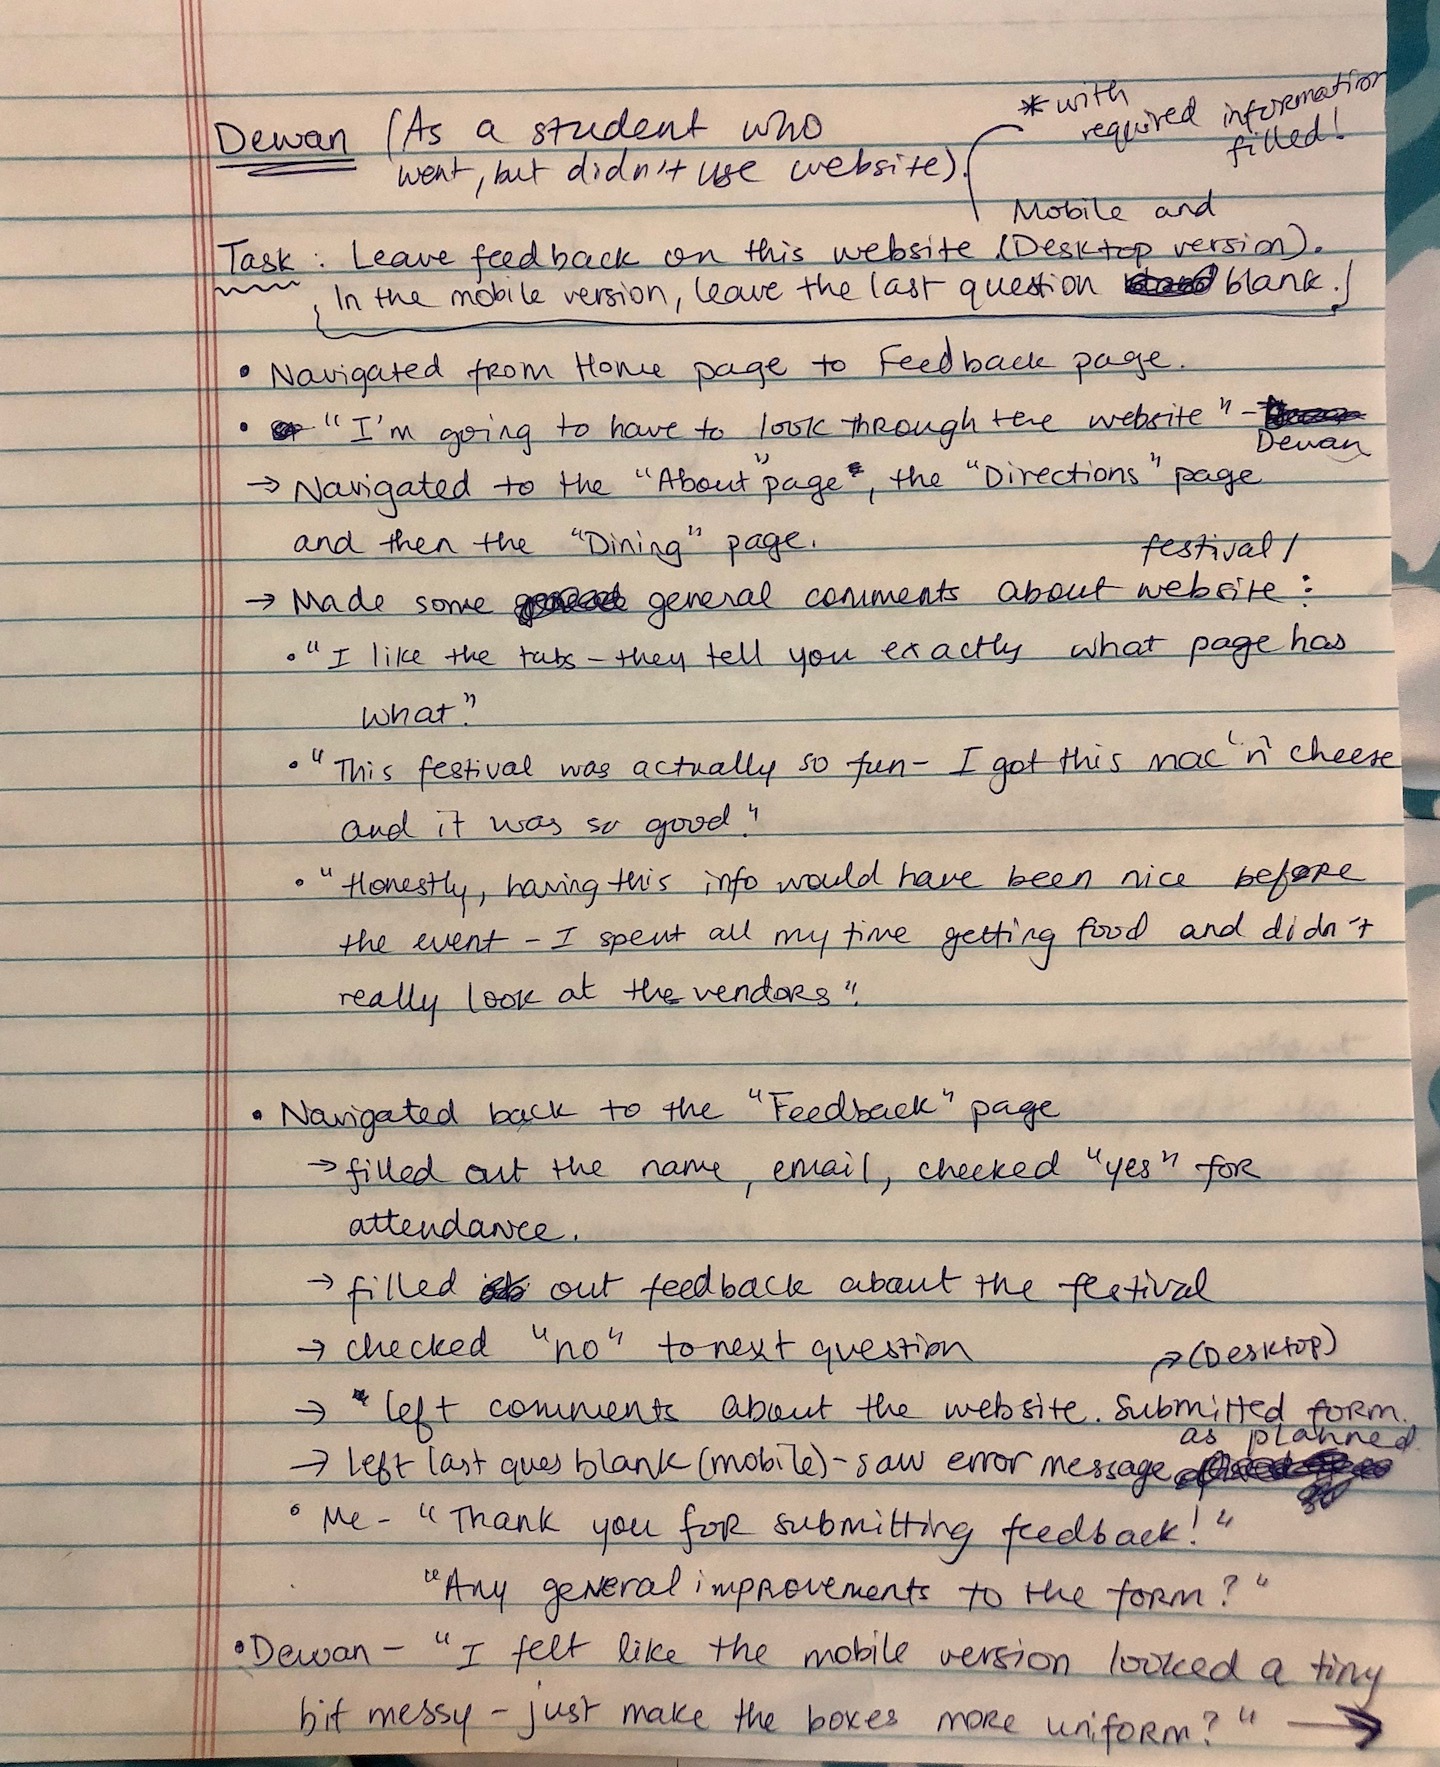 *with
required information
filled!
Dewan (As a student who
went, but didn't use website).
Mobile and
Task: Leave feedback on this website (Desktop version).
In the mobile version, leave the last question blank.
• Navigated from Home page to Feedback page.
• "I'm going to have to look through the website" -
Dewan
→ Navigated to the "About" page, the "Directions" page
and then the "Dining" page.
festival/
→ Made some general comments about website:
• "I like the tabs - they tell you exactly what page has
what."
• "This festival was actually so fun - I got this mac 'n' cheese
and it was so good."
• "Honestly, having this info would have been nice before
the event - I spent all my time getting food and didn't
really look at the vendors".
• Navigated back to the "Feedback" page
→ filled out the name, email, checked "yes" for
attendance.
→ filled out feedback about the festival
→ checked "no" to next question
→ (Desktop)
→ *left comments about the website. Submitted form.
as planned
→ left last ques blank (mobile) - saw error message
• Me - "Thank you for submitting feedback!"
"Any general improvements to the form?"
• Dewan - "I felt like the mobile version looked a tiny
bit messy - just make the boxes more uniform?" →